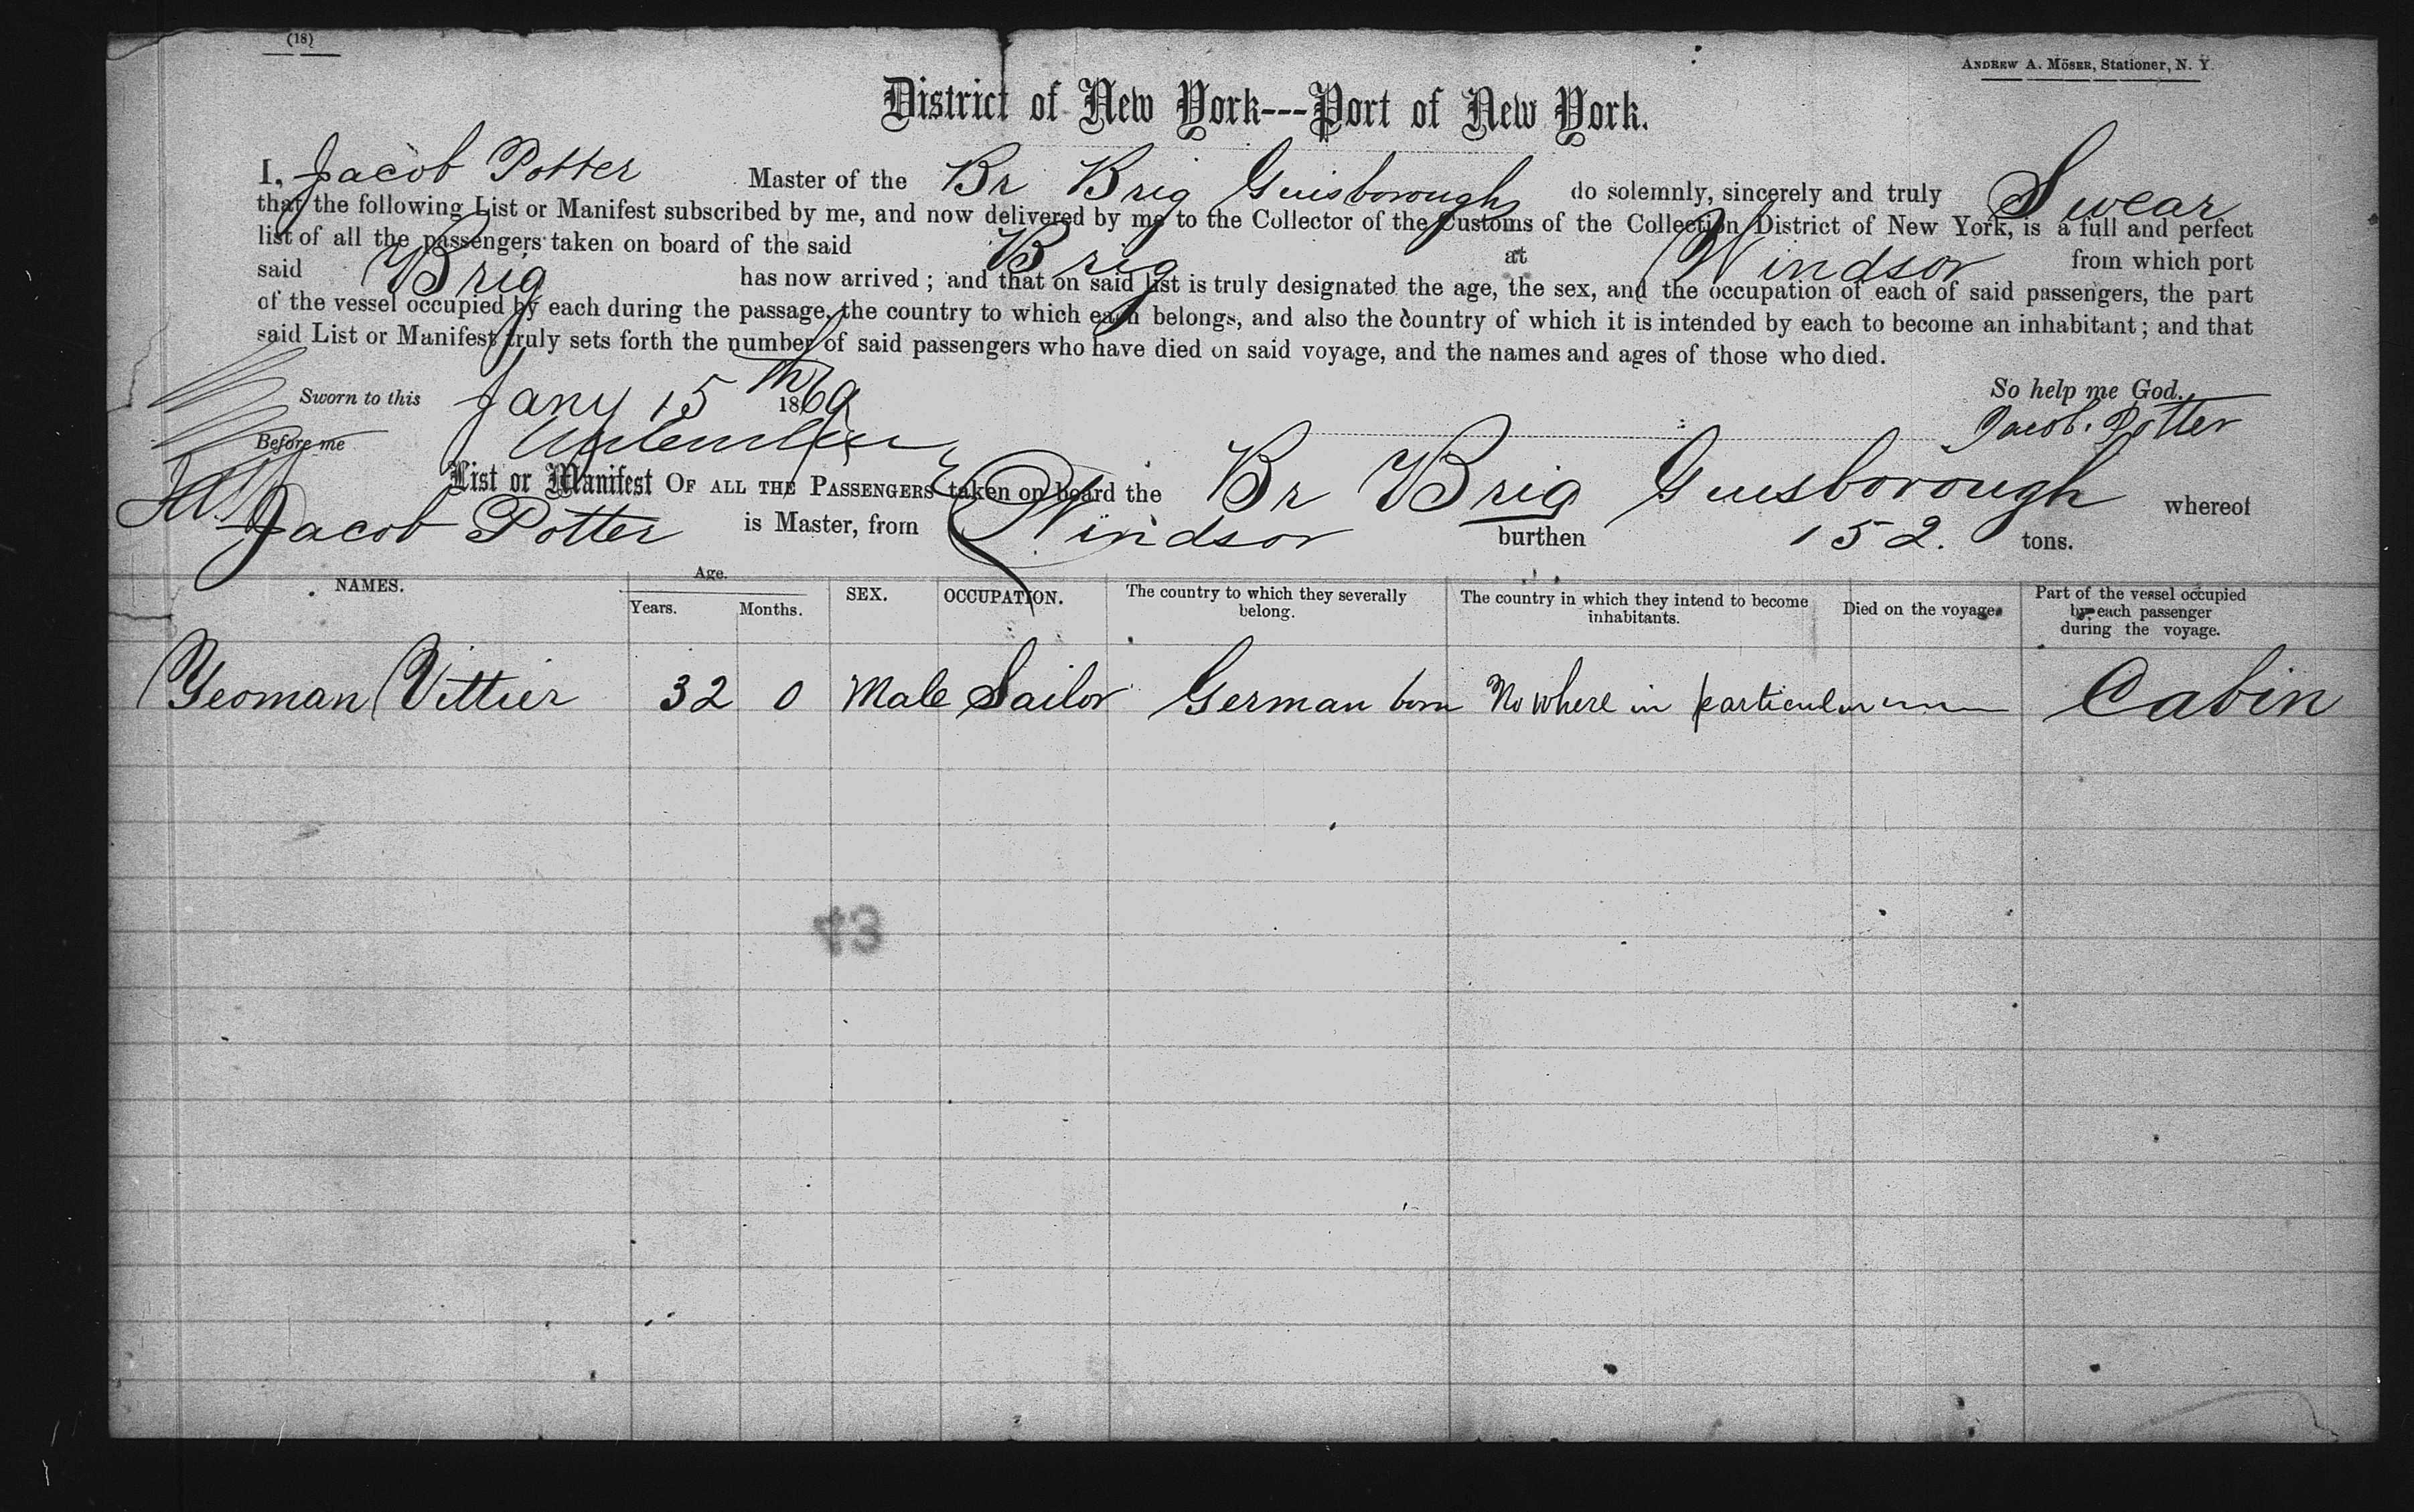 (18)
Andrew A. Möser, Stationer, N. Y.
District of New York---Port of New York.
I, Jacob Potter Master of the Br Brig Guisborough do solemnly, sincerely and truly Swear
that the following List or Manifest subscribed by me, and now delivered by me to the Collector of the Customs of the Collection District of New York, is a full and perfect
list of all the passengers taken on board of the said Brig at Windsor from which port
said Brig has now arrived ; and that on said list is truly designated the age, the sex, and the occupation of each of said passengers, the part
of the vessel occupied by each during the passage, the country to which each belongs, and also the country of which it is intended by each to become an inhabitant ; and that
said List or Manifest truly sets forth the number of said passengers who have died on said voyage, and the names and ages of those who died.
Sworn to this Jany 15th 1869 So help me God.
Before me Jacob. Potter
List or Manifest OF ALL THE PASSENGERS taken on board the Br Brig Guisborough whereof
Jacob Potter is Master, from Windsor burthen 152. tons.
NAMES. Age. Years. Months. SEX. OCCUPATION. The country to which they severally belong. The country in which they intend to become inhabitants. Died on the voyage. Part of the vessel occupied by each passenger during the voyage.
Yeoman Vittier 32 0 Male Sailor German born No where in particular Cabin
43